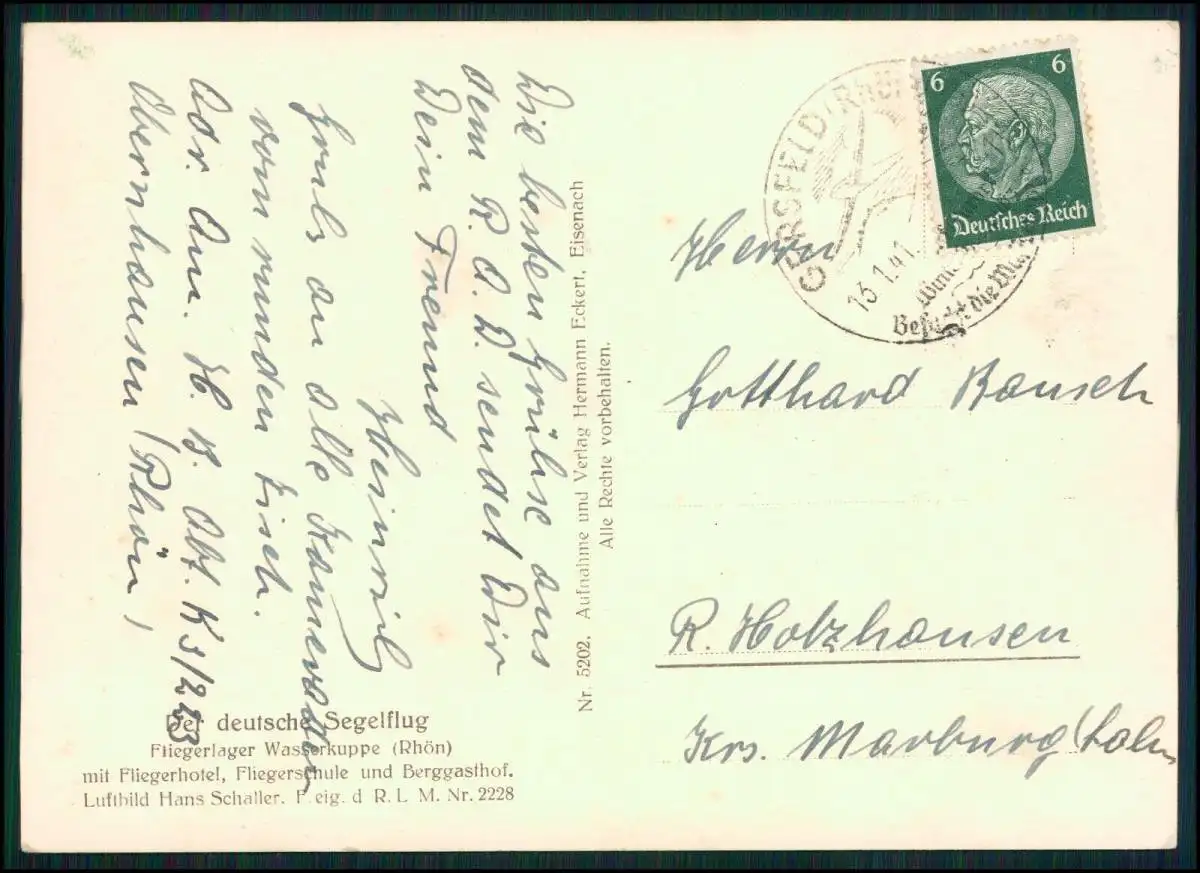 Die besten Grüße aus
dem R. A. D. sendet Dir
Dein Freund
Heinrich
Gruß an alle Kameraden
vom runden Tisch.
Adr. An. H. B. Abt. K 3/223
Obernhausen (Rhön)
Der deutsche Segelflug
Fliegerlager Wasserkuppe (Rhön)
mit Fliegerhotel, Fliegerschule und Berggasthof.
Luftbild Hans Schaller. F eig. d R. L M. Nr. 2228
Nr. 5202. Aufnahme und Verlag Hermann Eckert, Eisenach
Alle Rechte vorbehalten.
GERSFELD/RHÖN
13.1.41
Besucht die
6 6
Deutsches Reich
Herrn
Gotthard Bausch
R. Holzhausen
Krs. Marburg/Lahn